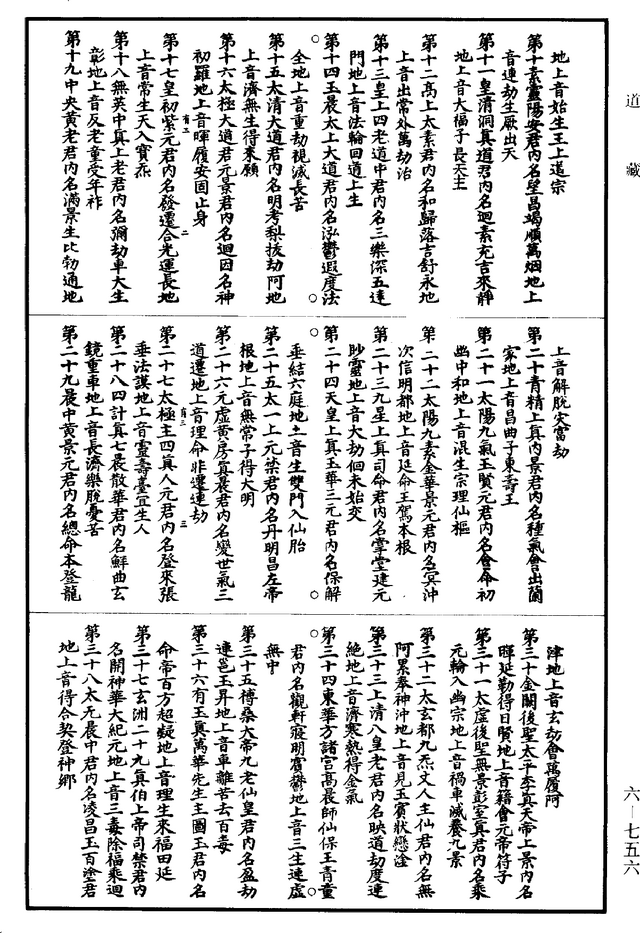 道藏
地上音始生王上道宗
第十素靈陽安君內名望昌竭順萬烟地上
音連劫生厭出天
第十一皇清洞真道君內名迴素充吉來靜
地上音大福子長天主
第十二高上太素君內名和歸落吉舒永地
上音出常外萬劫治
第十三皇上四老道中君內名三樂深五達
門地上音法輪回道上生
第十四玉晨太上大道君內名泓鬱遐度法
全地上音重劫視滅長苦
第十五太清大道君內名明考梨拔劫阿地
上音濟無生得來願
第十六太極大道君元景君內名迴因名神
初羅地上音暉履安固止身
第十七皇初紫元君內名發遷合光運長地
上音常生天入寶炁
第十八無英中真上老君內名彌劫車大生
彰地上音反老童受年祚
第十九中央黃老君內名滿景生比勃通地
上音解脫災當劫
第二十青精上真內景君內名種氣會出蘭
家地上音昌曲子東壽王
第二十一太陽九氣玉賢元君內名會命初
幽中和地上音混生宗理仙樞
第二十二太陽九素金華景元君內名冥沖
次信明都地上音延命王駕本根
第二十三九星上真司命君內名掌堂建元
眇靈地上音大劫個未始交
第二十四天皇上真玉華三元君內名保解
垂結六庭地上音生雙門入仙胎
第二十五太一上元禁君內名丹明昌左帝
根地上音無常子得大明
第二十六元虛黃房真晨君內名變世氣三
道遷地上音理命非遷連劫
第二十七太極主四真人元君內名登來張
垂法謀地上音靈壽臺宜生人
第二十八四計真七晨散華君內名鮮曲玄
鏡重車地上音長濟樂脫憂苦
第二十九晨中黃景元君內名總命本登龍
津地上音玄劫會萬履阿
第三十金闕後聖太平李真天帝上景內名
暉延勒得日賢地上音籍會元帝符子
第三十一太虛後聖無景彭室真君內名乘
元輪入幽宗地上音禍車滅養九景
第三十二太玄都九炁丈人主仙君內名無
阿累奉神沖地上音見玉寶狀戀淦
第三十三上清八皇老君內名映道劫度連
絕地上音濟寒熱得金氣
第三十四東華方諸宮高晨師仙保王青童
君內名觀軒寢明霄鬱地上音三生連虛
無中
第三十五搏桑大帝九老仙皇君內名盈劫
連邕玉昇地上音車離苦去百毒
第三十六有玉真萬華先生主圖玉君內名
命帝百方超凝地上音理生來福田延
第三十七玄洲二十九真伯上帝司禁君內
名開神華大紀元地上音三毒除福乘迴
第三十八太元晨中君內名凌昌玉百塗君
地上音得合契登神鄉
六—七五六